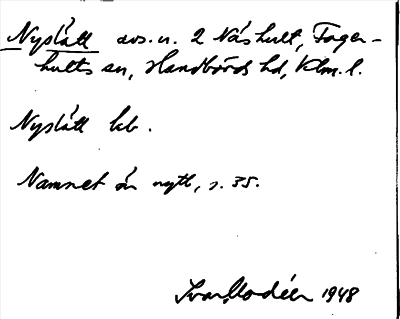 Nyslätt avs. u. 2 Näshult, Fager-
hults sn, Handbörds hd, Klm. l.
Nyslätt kb.
Namnet är nytt, s. 35.
Ivar Modéer 1948